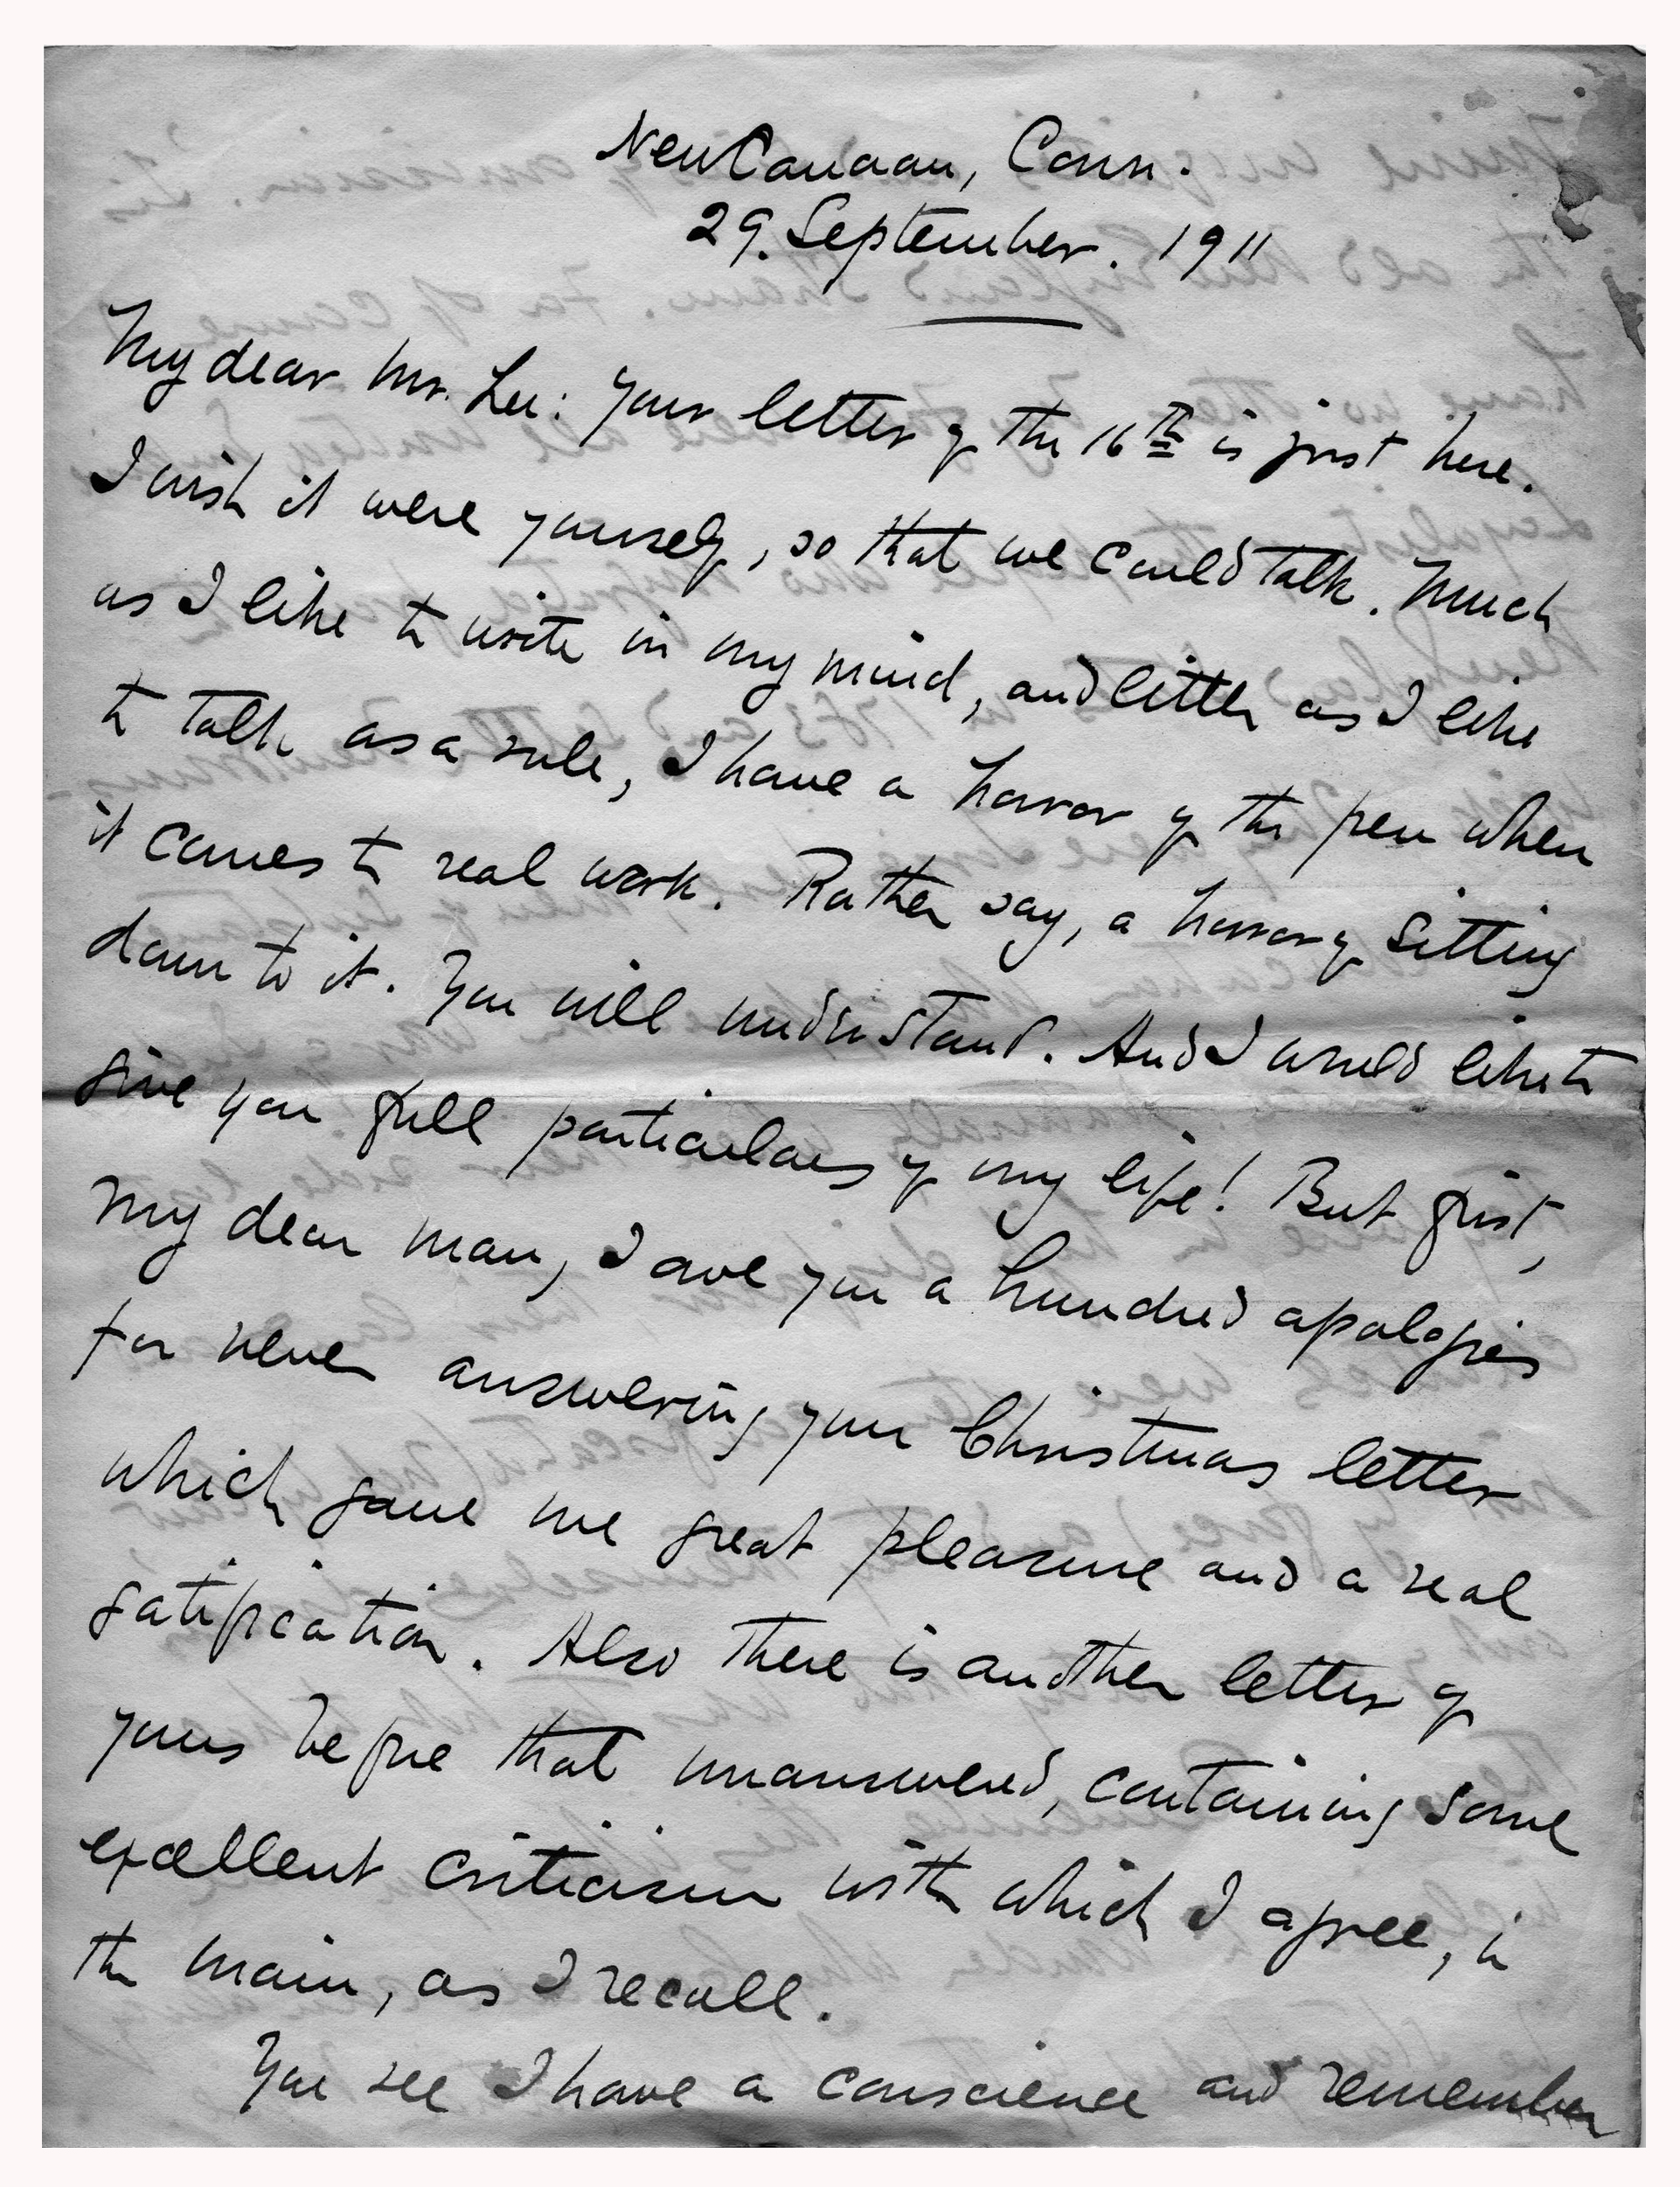 New Canaan, Conn.
29. September. 1911
My dear Mr. Lee: Your letter of the 16th is just here.
I wish it were yourself, so that we could talk. Much
as I like to write in my mind, and little as I like
to talk as a rule, I have a horror of the pen when
it comes to real work. Rather say, a horror of sitting
down to it. You will understand. And I would like to
give you full particulars of my life! But first,
my dear man, I owe you a hundred apologies
for never answering your Christmas letter
which gave me great pleasure and a real
gatification. Also there is another letter of
yours before that unanswered, containing some
excellent criticism with which I agree, in
the main, as I recall.
You see I have a conscience and remember